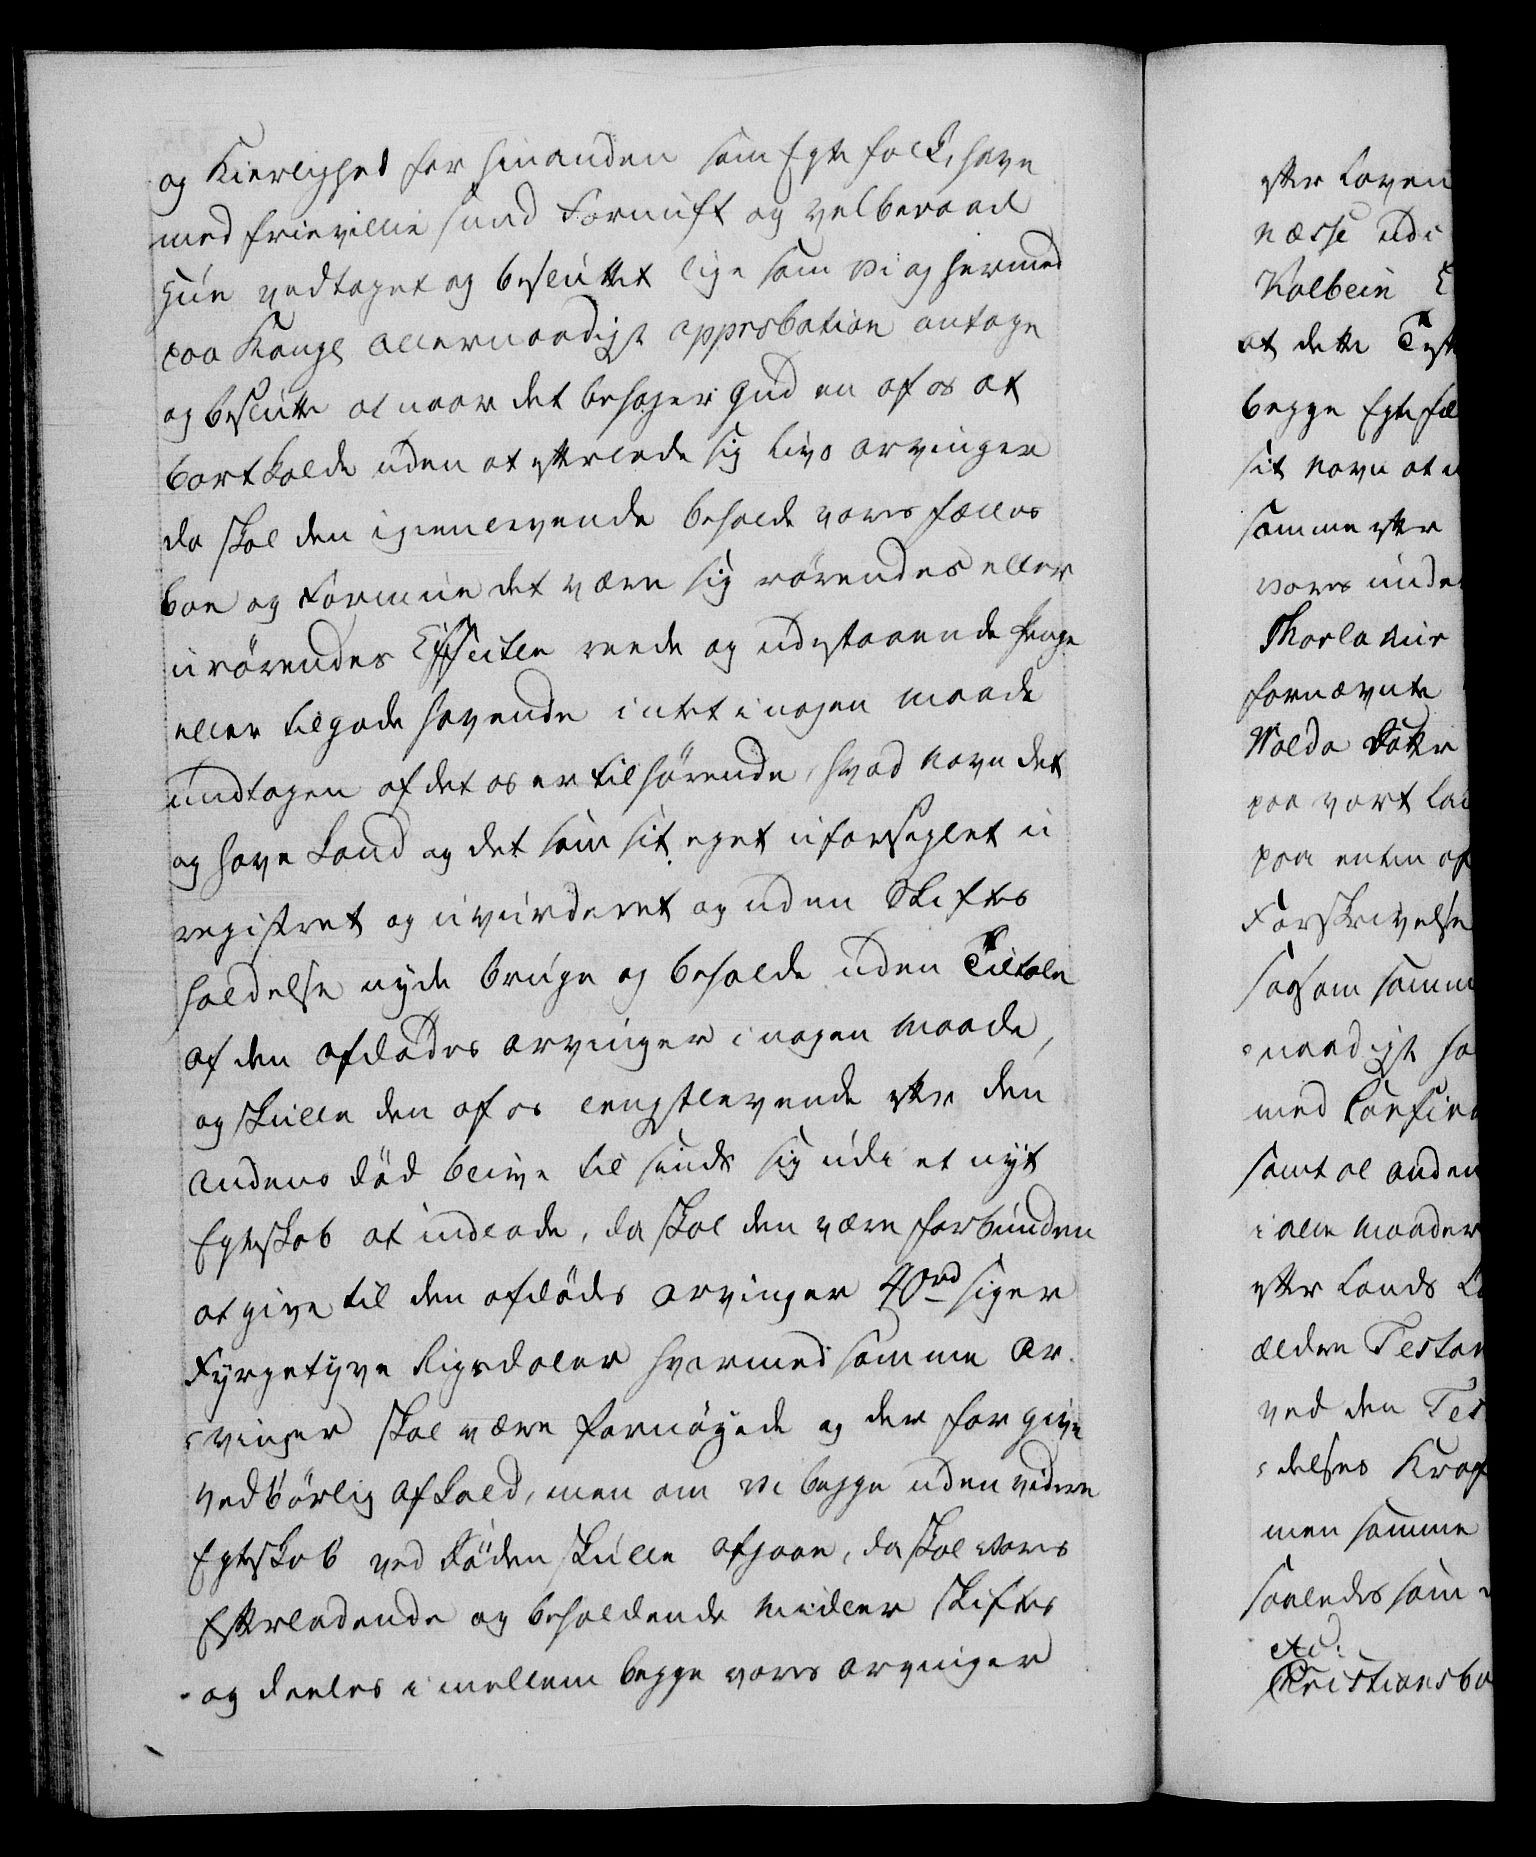 og Kierlighed for hinanden som Egte folk, have
med frievillie sund Fornuft og velberaad
Hue vedtaget og besluttet lige som Vi og hermed
paa Kongl allernaadigst approbation antage
og beslutte at naar det behager Gud en af os at
bortkalde uden at efterlade sig Livs arvinger
da skal den igienlevende beholde vores fælles
boe og Formue det være sig rørendes eller
urørendes Effecter reede og udestaaende Penge
eller tilgode havende intet i nogen maade
undtagen af det os er tilhørende, hvad Navn det
og have kand og det som sit eget uforseglet u
registret og uvurderet og uden Skiftes
holdelse nyde bruge og beholde uden Tiltale
af den afdødes arvinger i nogen Maade,
og skulle den af os lengstlevende efter den
andens død blive til sinds sig udi et nyt
Egteskab at indlade, da skal den være forbunden
at give til den afdødes arvinger 40rd siger
Fyrgetyve Rigsdaler hvormed samme Ar-
-vinger skal være fornøyede og der for give
vedbørlig afkald, men om vi begge uden videre
Egteskab ved Døden skulle afgaae, da skal vores
Efterladende og beholdende Midler skiftes
og deeles i mellem begge vores arvinger
efter Loven
næsse udi
Kolbein E
at dette Test
begge Egtefæ
sit Navn at u
samme efter
vores unde
Thorlakur
fornævnte
Wolda Datr
paa vort La
paa enten af
Forskrivelse
saasom samm
-naadigst ha
med Confirm
samt al anden
i alle Maader
efter Lands L
ældre Testam
ved den Tes
-delses Kraf
men samme
saaledes som
etc:
Christiansbo